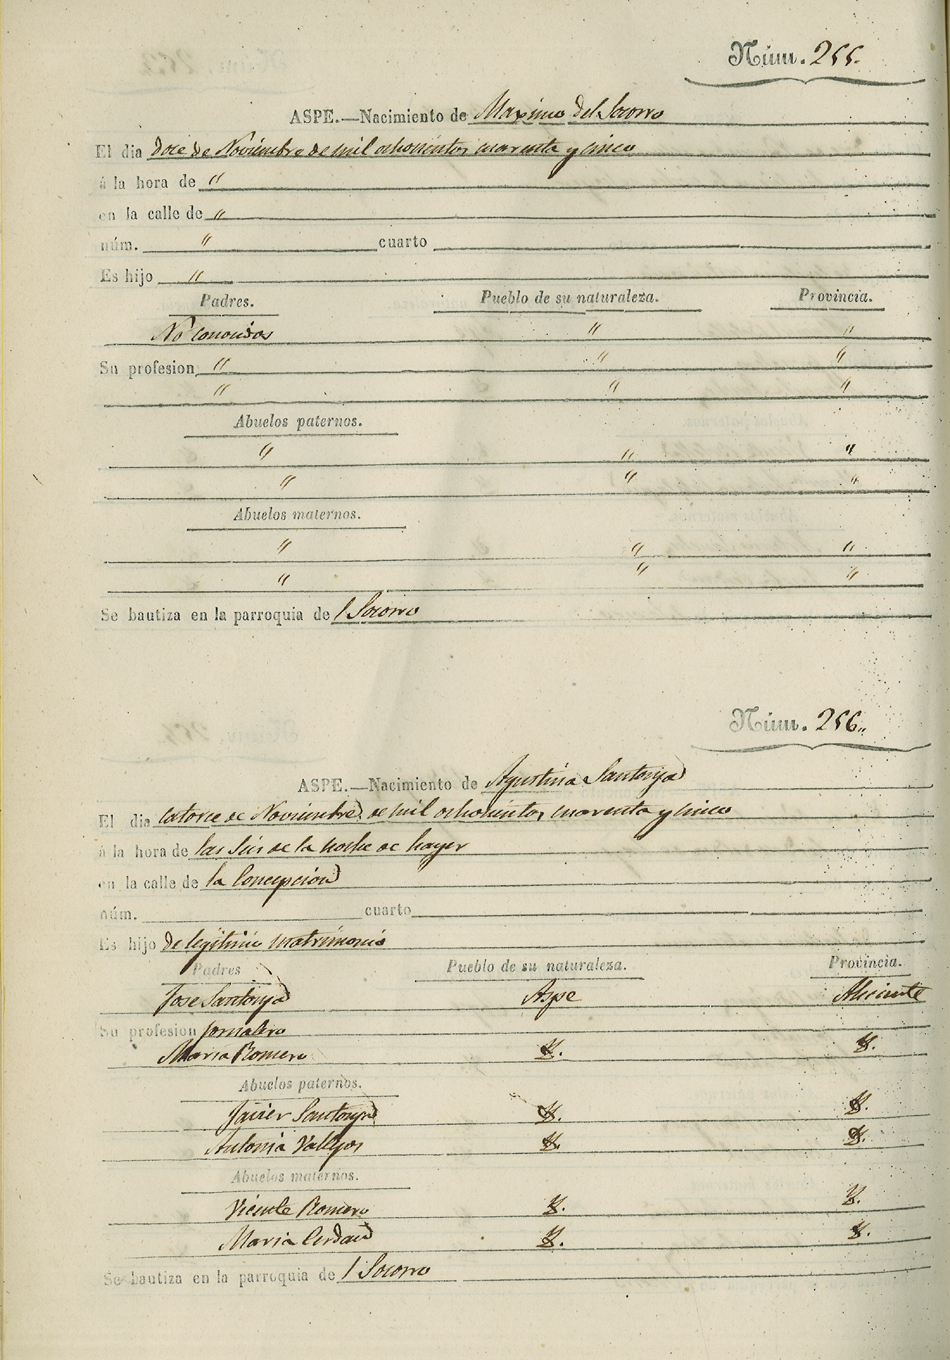 Núm. 255.
ASPE.—Nacimiento de Maximo del Socorro
El dia doce de Noviembre de mil ochocientos cuarenta y cinco
á la hora de "
en la calle de "
núm. " cuarto
Es hijo "
Padres. Pueblo de su naturaleza. Provincia.
No conocidos " "
Su profesion " " "
" " "
Abuelos paternos.
" " "
" " "
Abuelos maternos.
" " "
" " "
Se bautiza en la parroquia de l Socorro
Núm. 256.
ASPE.—Nacimiento de Agustina Santonja
El dia catorce de Noviembre de mil ochocientos cuarenta y cinco
á la hora de las seis de la noche de hayer
en la calle de la Concepcion
núm. cuarto
Es hijo de legitimo matrimonio
Padres Pueblo de su naturaleza. Provincia.
Jose Santonja Aspe Alicante
Su profesion Jornalero
Maria Romero Y. Y.
Abuelos paternos.
Javier Santonja Y. Y.
Antonia Vallejos Y. Y.
Abuelos maternos.
Vicente Romero Y. Y.
Maria Cerdan Y. Y.
Se bautiza en la parroquia de l Socorro